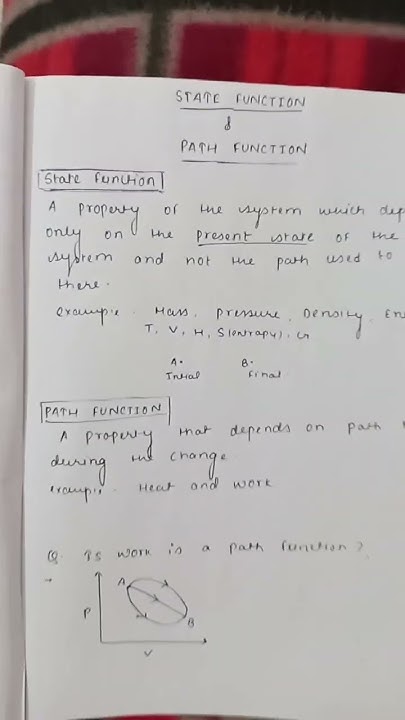 STATE FUNCTION
&
PATH FUNCTION
State function
A property of the system which dep
only on the present state of the
system and not the path used to
there.
example. Mass, Pressure, Density, En
T, V, H, S(entropy), G
A. B.
Initial Final
PATH FUNCTION
A property that depends on path
during the change
example. Heat and work
Q. Is work is a path function?
→
A
P
B
V